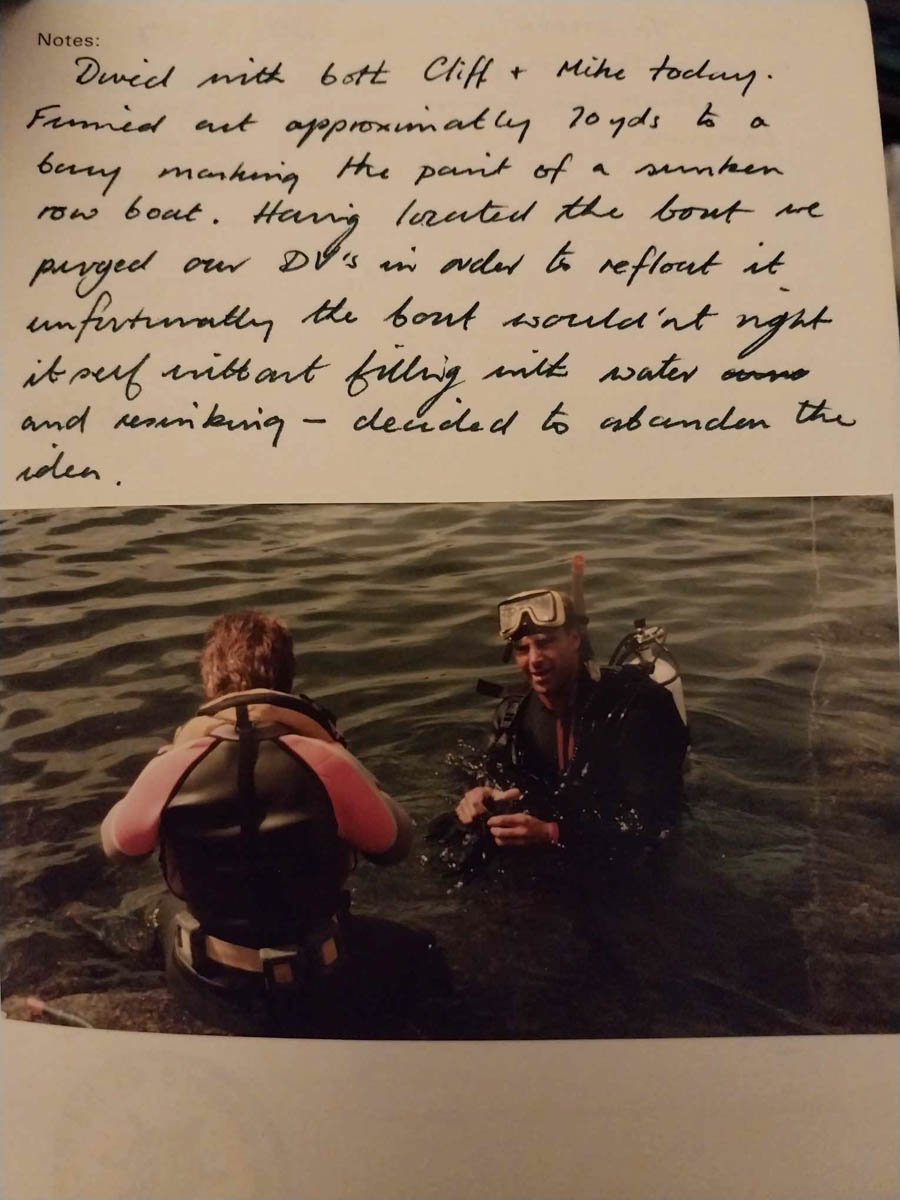 Notes:
Dived with both Cliff + Mike today.
Finned out approximatley 70yds to a
bouy marking the point of a sunken
row boat. Having located the boat we
purged our DV's in order to refloat it
unfortunatley the boat would'nt right
itself without filling with water
and resinking – decided to abandon the
idea.